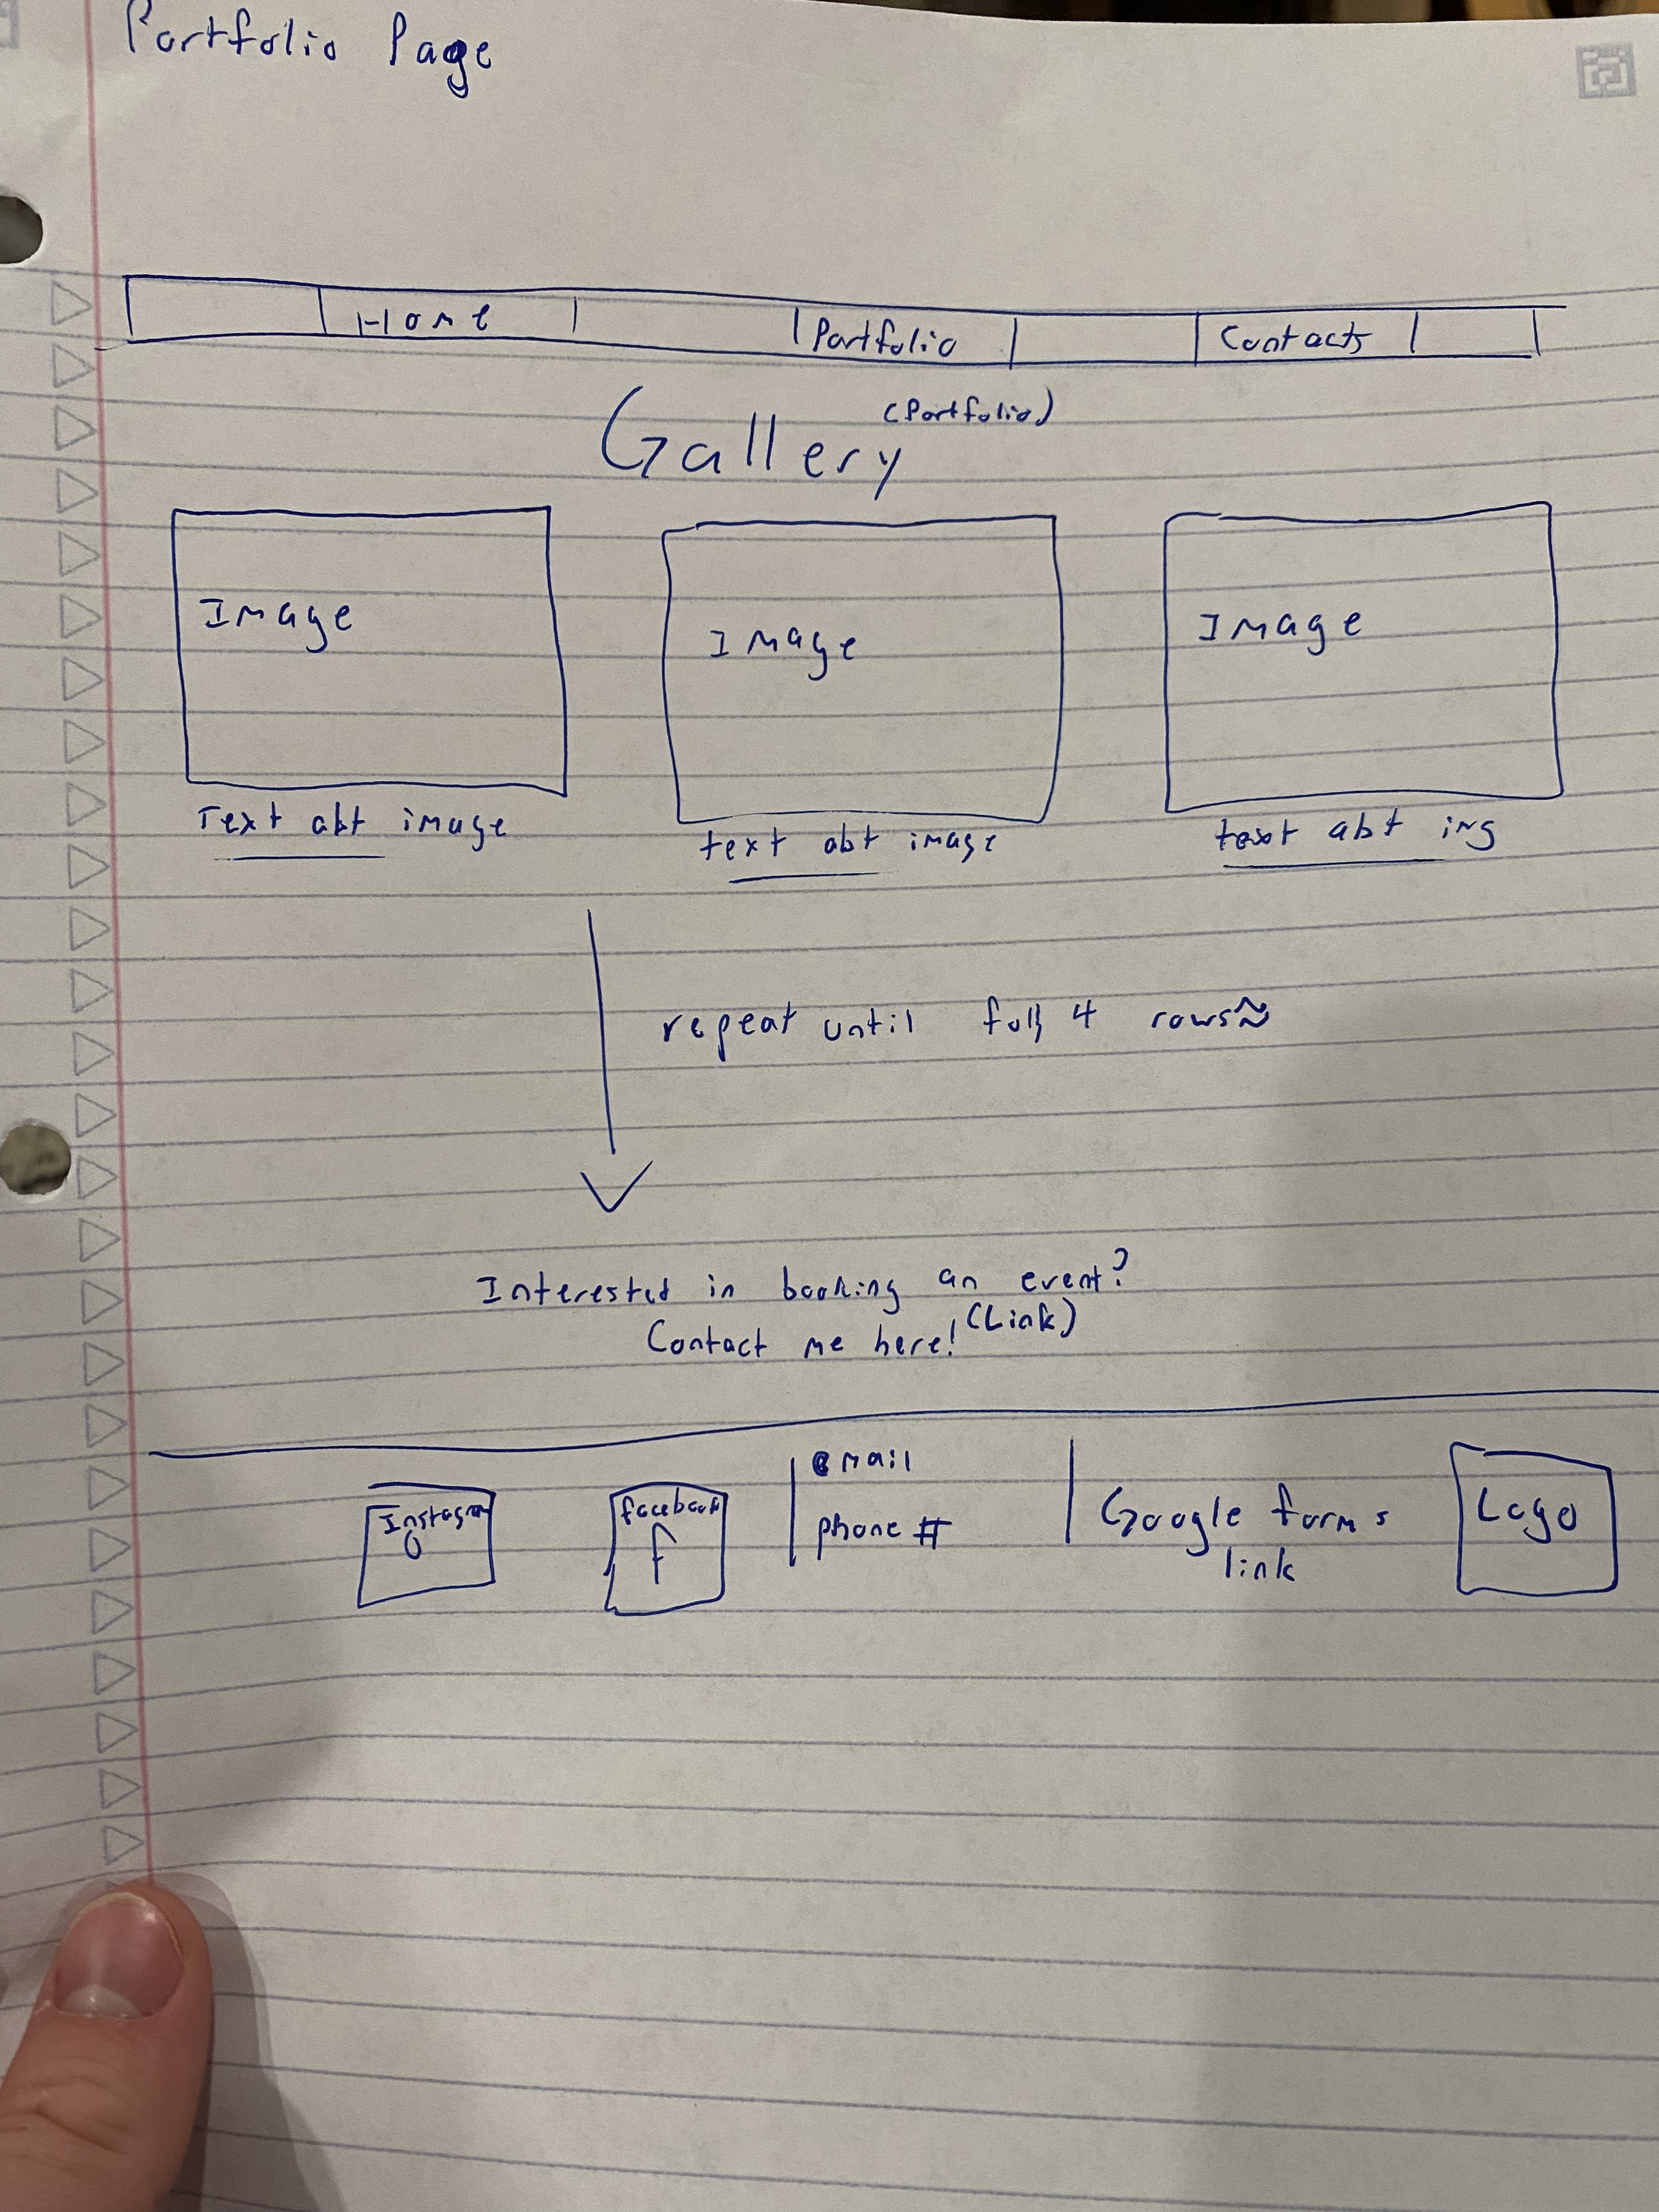 Portfolio Page
Home Portfolio Contacts
Gallery (Portfolio)
Image Image Image
Text abt image text abt image text abt img
repeat until full 4 rows≈
Interested in booking an event?
Contact me here! (Link)
Instagram facebook email Google forms Logo
f phone # link